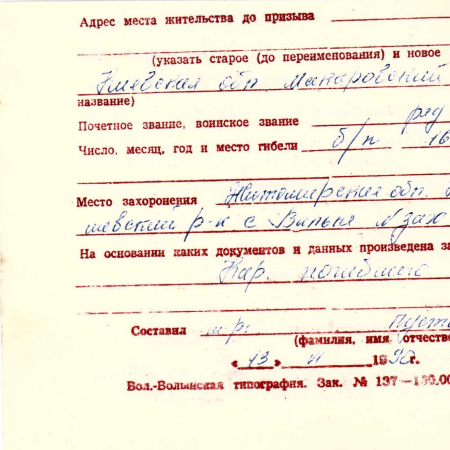 Адрес места жительства до призыва
(указать старое (до переименования) и новое
Киевская обл Макаровский
название)
Почетное звание, воинское звание ряд
Число, месяц, год и место гибели б/п 16
Место захоронения Житомирская обл.
шевский р-н с Вильня
На основании каких документов и данных произведена за
Кар. погибшего
Составил м.р. Пуст
(фамилия, имя отчество
«13» 1990г.
Вол.-Волынская типография. Зак. № 137—130.00